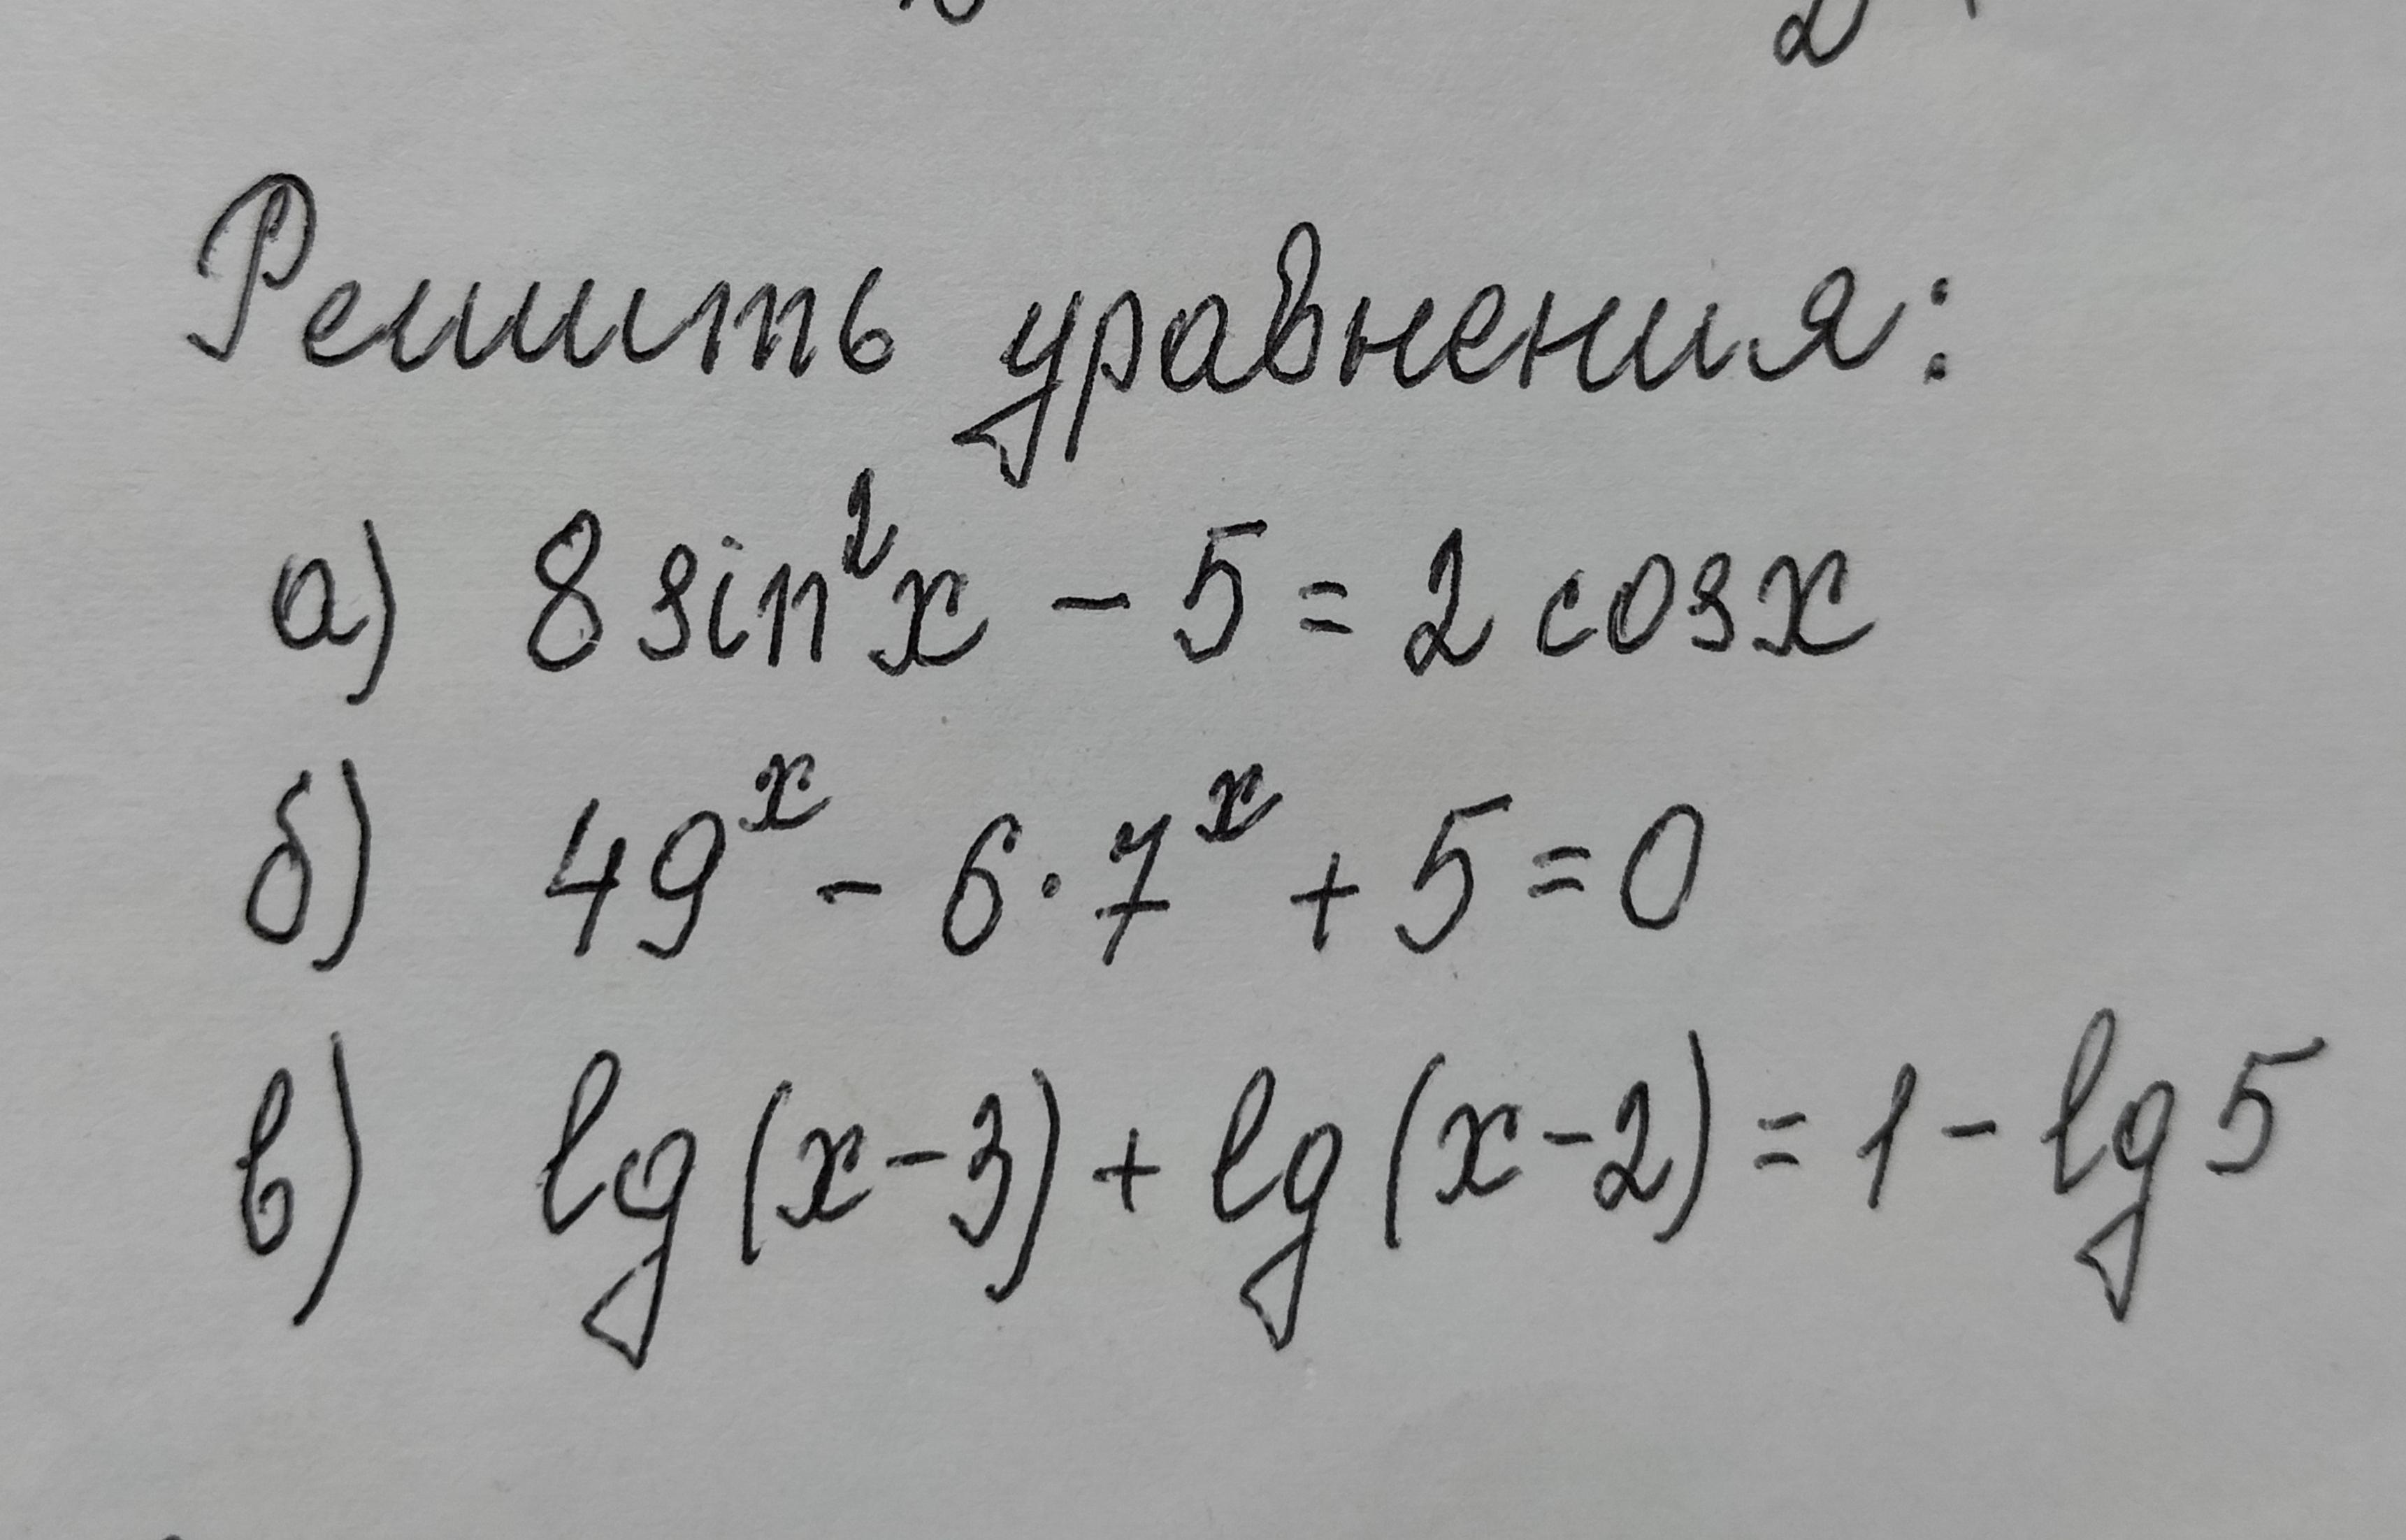 Решить уравнения:
а) 8 sin²x - 5 = 2 cosx
б) 49ˣ - 6·7ˣ + 5 = 0
в) lg(x-3) + lg(x-2) = 1 - lg5